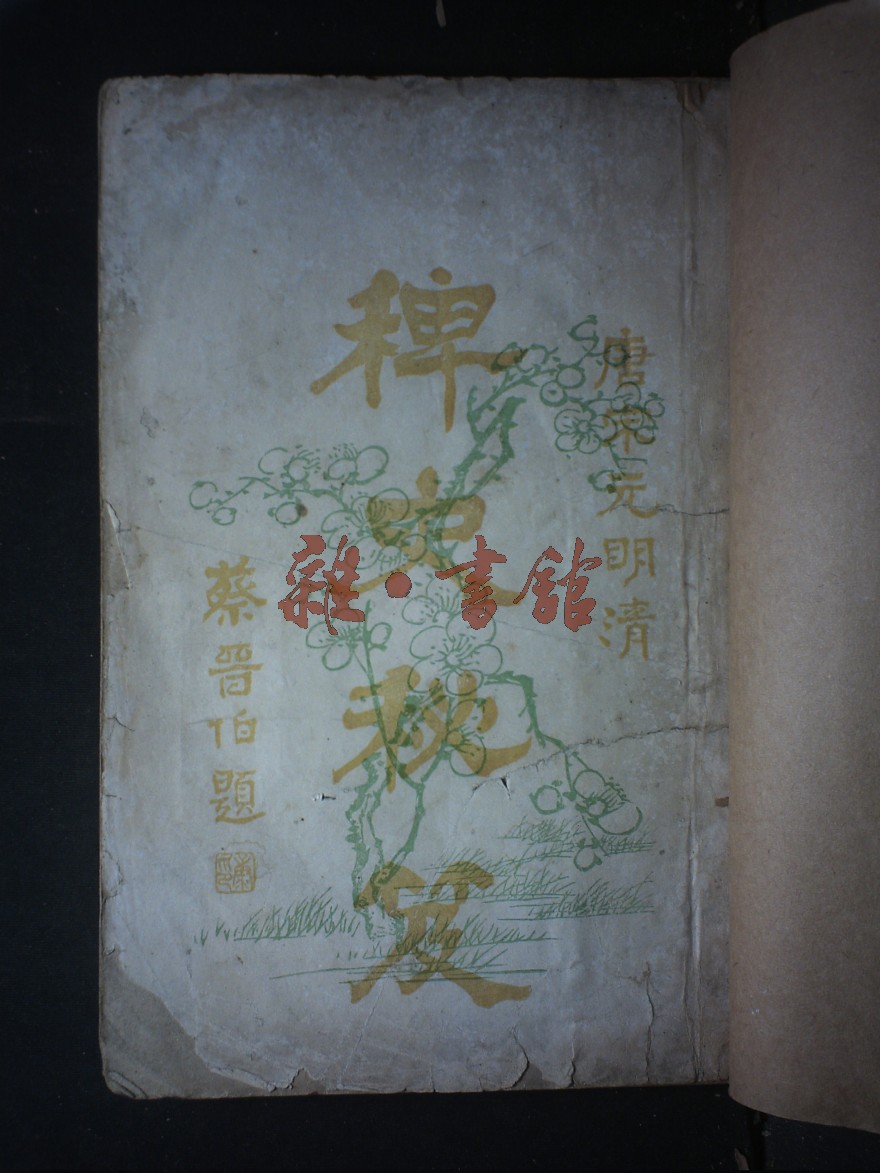 唐宋元明清
稗史秘笈
蔡晉伯題
雜·書館